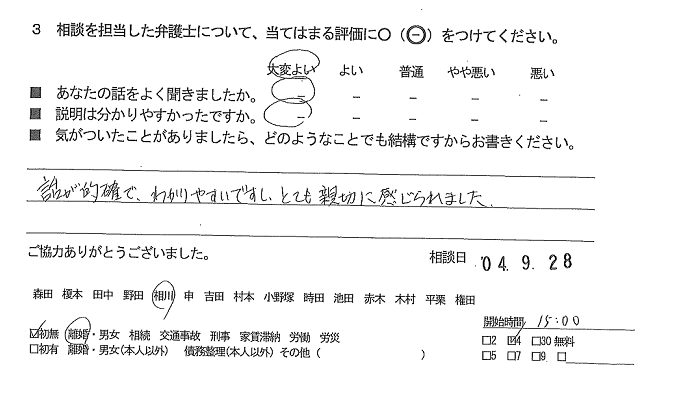 3 相談を担当した弁護士について、当てはまる評価に○(㊀)をつけてください。
大変よい よい 普通 やや悪い 悪い
■ あなたの話をよく聞きましたか。 − − − − −
■ 説明は分かりやすかったですか。 − − − − −
■ 気がついたことがありましたら、どのようなことでも結構ですからお書きください。
話が的確で、わかりやすいですし、とても親切に感じられました。
ご協力ありがとうございました。 相談日 '04. 9. 28
森田 榎本 田中 野田 相川 申 吉田 村本 小野塚 時田 池田 赤木 木村 平栗 権田
開始時間 15:00
☑初無 離婚・男女 相続 交通事故 刑事 家賃滞納 労働 労災 □2 ☑4 □30 無料
□初有 離婚・男女(本人以外) 債務整理(本人以外) その他( ) □5 □7 □9 □